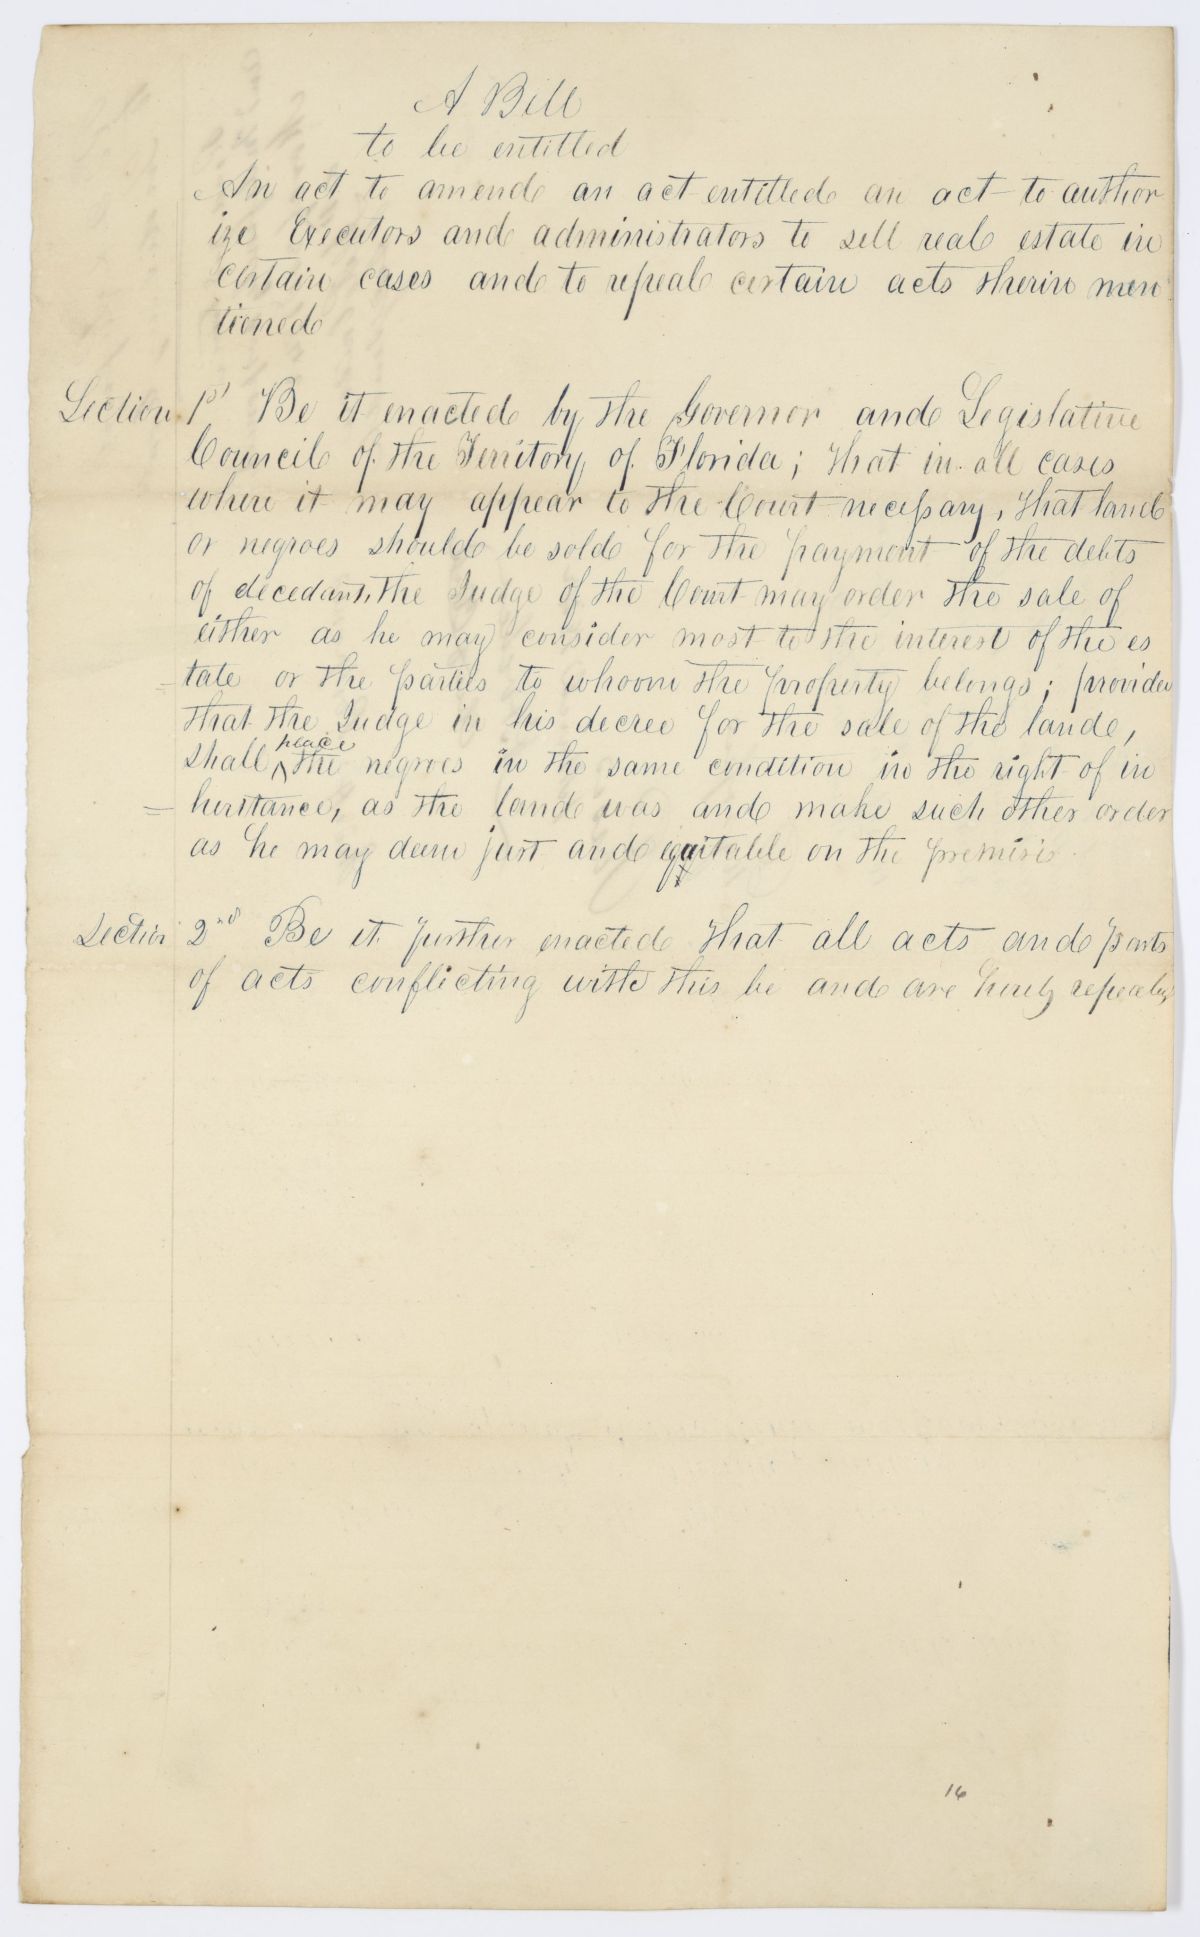 A Bill
to be entitled
An act to amend an act entitled an act to author
ize Executors and administrators to sell real estate in
certain cases and to repeal certain acts therin men
tioned
Section 1st Be it enacted by the Governor and Legislative
Council of the Territory of Florida; that in all cases
where it may appear to the Court necessary, that land
or negroes should be sold for the payment of the debts
of decedants, the Judge of the Court may order the sale of
either as he may consider most to the interest of the es
tate or the parties to whoom the property belongs; provided
that the Judge in his decree for the sale of the land,
place
shall ^ the negroes in the same condition in the right of in
= heritance, as the land was and make such other order
as he may deem just and equitable on the premises.
Section 2nd Be it further enacted that all acts and parts
of acts conflicting with this be and are hereby repealed
16